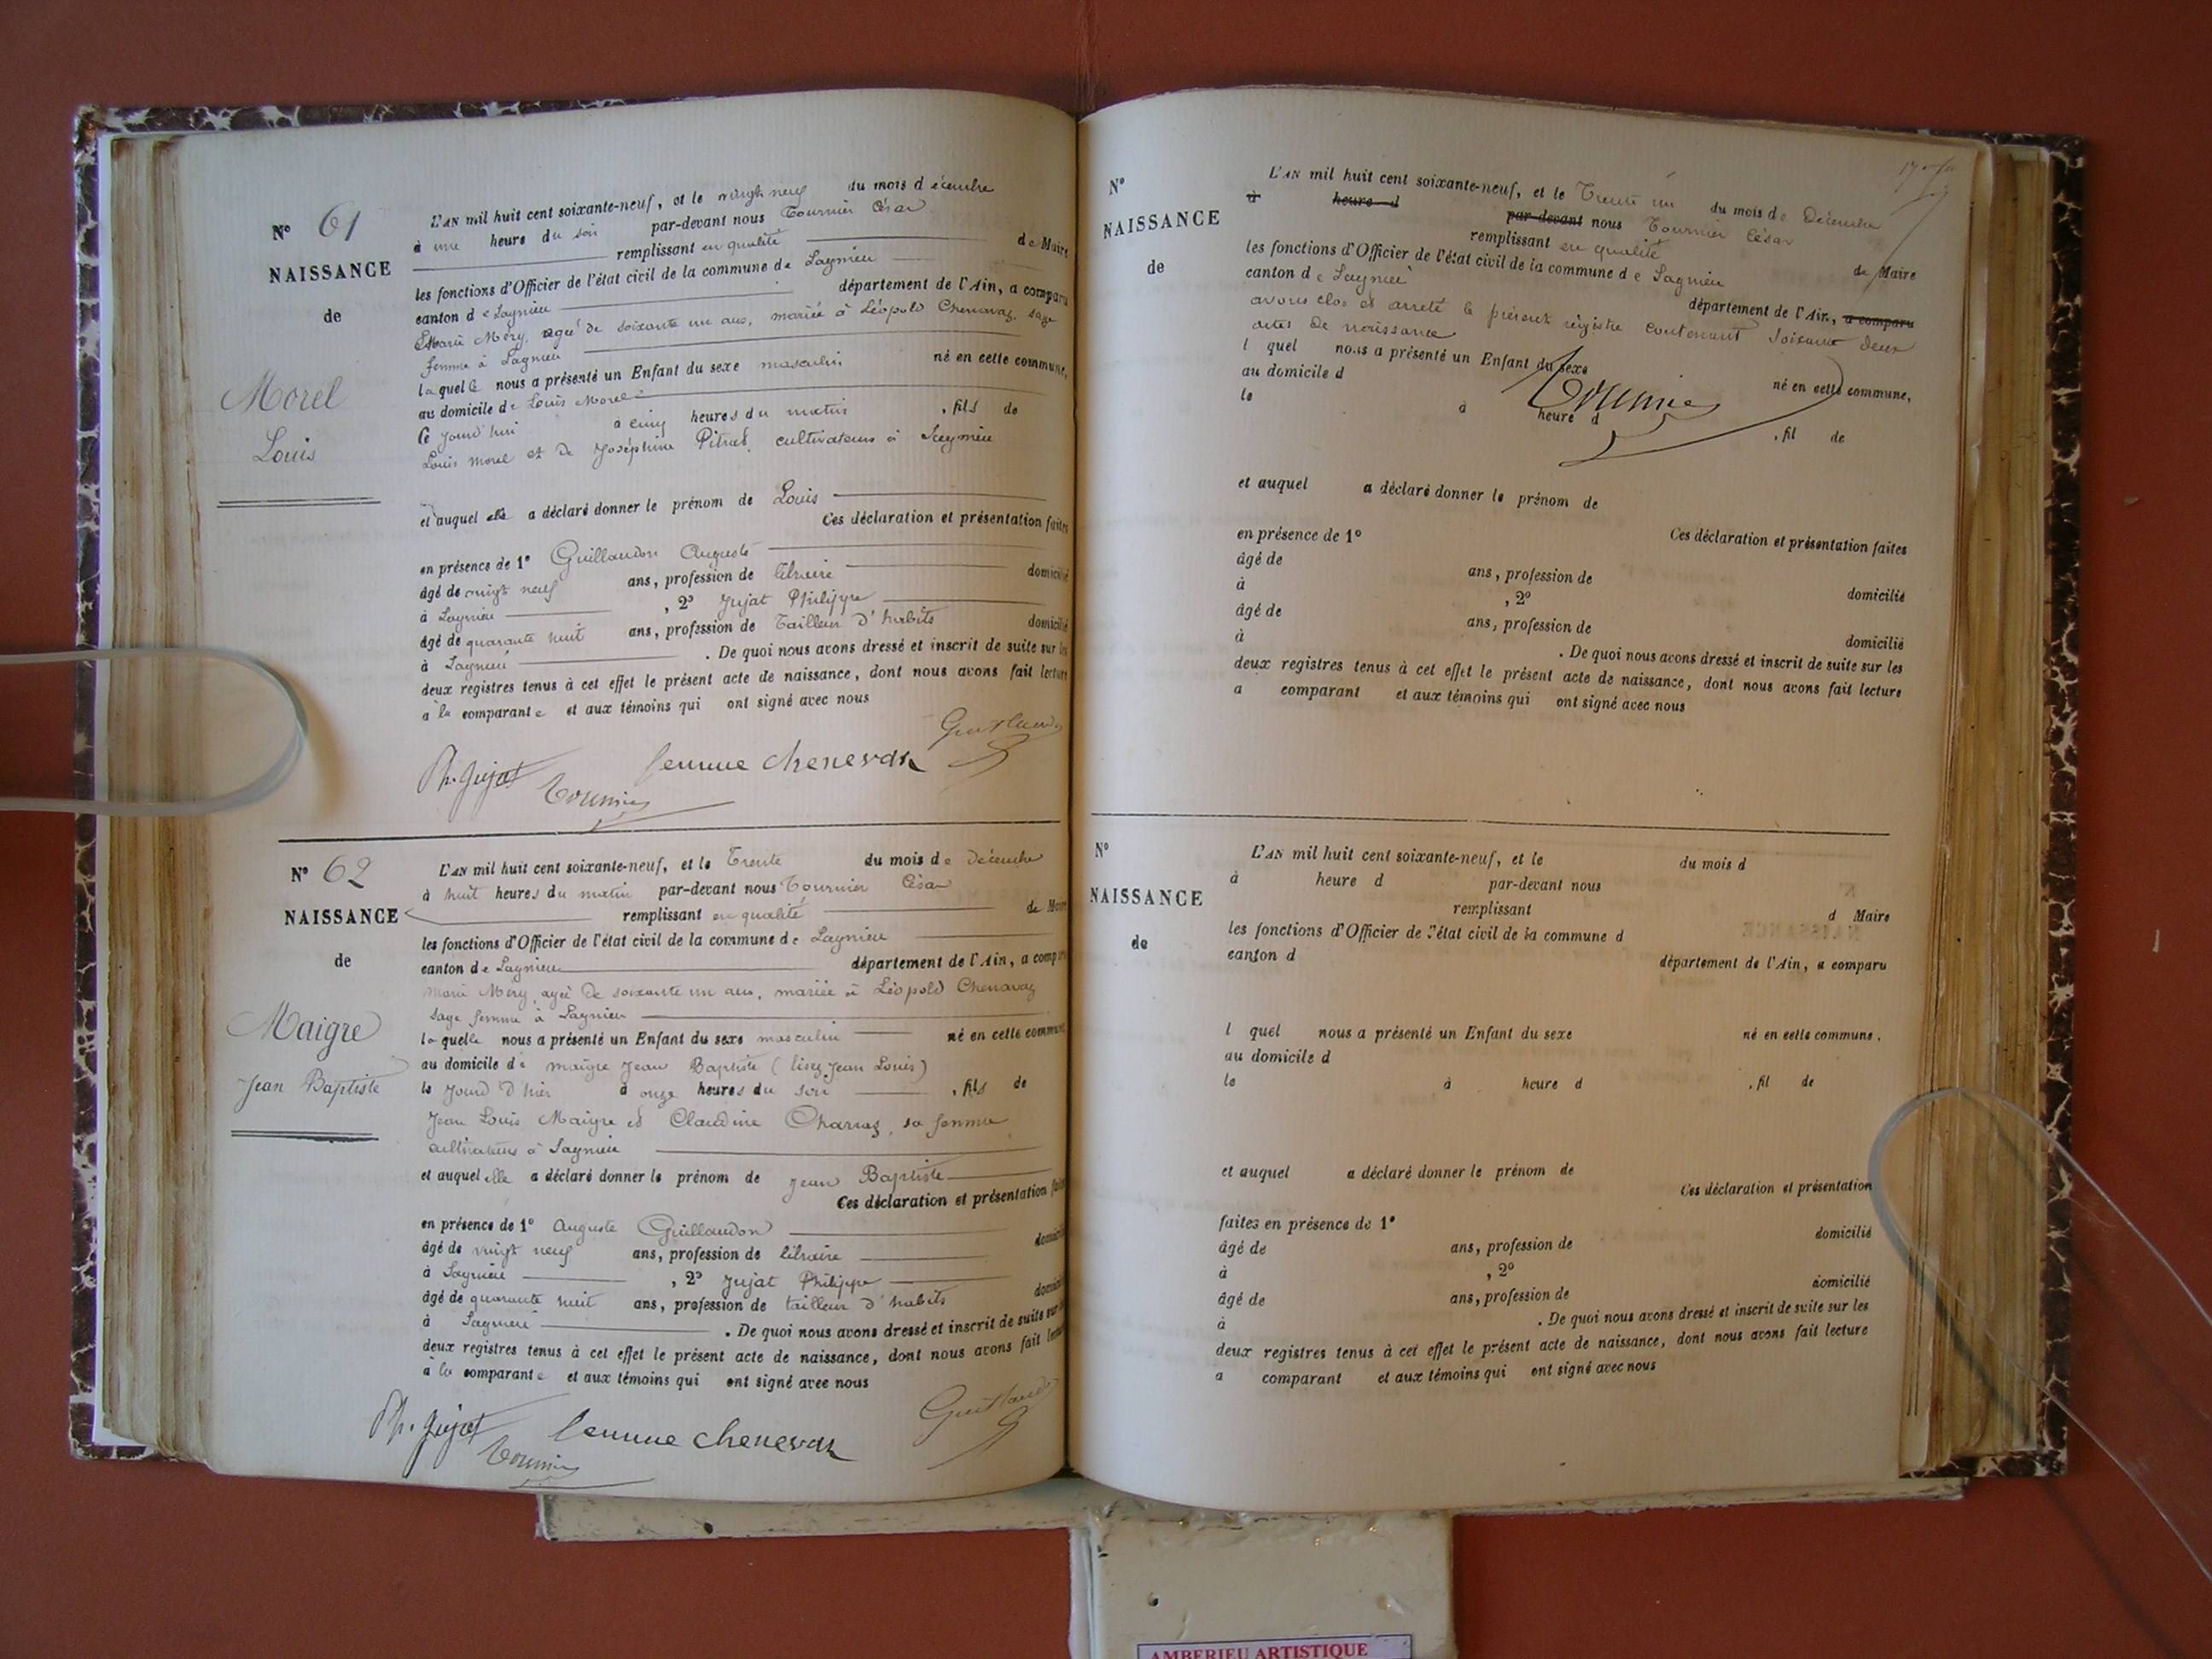 N° 61
NAISSANCE
de
Morel
Louis
L'AN mil huit cent soixante-neuf, et le vingt neuf du mois d écembre
à une heure du soir par-devant nous Tournier César
remplissant en qualité de Maire
les fonctions d'Officier de l'état civil de la commune de Lagnieu
canton de Lagnieu département de l'Ain, a comparu
Marie Méry, agée de soixante un ans, mariée à Léopold Chenavaz, sage
femme à Lagnieu
laquelle nous a présenté un Enfant du sexe masculin né en cette commune,
au domicile de Louis Morel
le jourd'hui à cinq heures du matin , fils de
Louis Morel et de Joséphine cultivateurs à Lagnieu
et auquel elle a déclaré donner le prénom de Louis
Ces déclaration et présentation faites
en présence de 1° Guillaudon Auguste
âgé de vingt neuf ans, profession de libraire domicilié
à Lagnieu , 2° Jujat Philippe
âgé de quarante huit ans, profession de Tailleur d'habits domicilié
à Lagnieu . De quoi nous avons dressé et inscrit de suite sur les
deux registres tenus à cet effet le présent acte de naissance, dont nous avons fait lecture
a la comparante et aux témoins qui ont signé avec nous
Guillaudon
Ph. Jujat femme chenevaz
Tournier
N° 62
NAISSANCE
de
Maigre
Jean Baptiste
L'AN mil huit cent soixante-neuf, et le Trente du mois de Décembre
à huit heures du matin par-devant nous Tournier César
remplissant en qualité de Maire
les fonctions d'Officier de l'état civil de la commune de Lagnieu
canton de Lagnieu département de l'Ain, a comparu
Marie Méry, agée de soixante un ans, mariée à Léopold Chenavaz
sage femme à Lagnieu
laquelle nous a présenté un Enfant du sexe masculin né en cette commune
au domicile de maigre Jean Baptiste (lisez Jean Louis)
le jourd'hier à onze heures du soir , fils de
Jean Louis Maigre et Claudine Charraz, sa femme
cultivateurs à Lagnieu
et auquel elle a déclaré donner le prénom de Jean Baptiste
Ces déclaration et présentation faites
en présence de 1° Auguste Guillaudon
âgé de vingt neuf ans, profession de libraire domicilié
à Lagnieu , 2° Jujat Philippe
âgé de quarante huit ans, profession de tailleur d'habits domicilié
à Lagnieu . De quoi nous avons dressé et inscrit de suite sur les
deux registres tenus à cet effet le présent acte de naissance, dont nous avons fait lecture
a la comparante et aux témoins qui ont signé avec nous
Ph. Jujat femme chenevaz Guillaudon
Tournier
N°
NAISSANCE
de
L'AN mil huit cent soixante-neuf, et le Trente un du mois de Décembre
à heure d par-devant nous Tournier César
remplissant en qualité de Maire
les fonctions d'Officier de l'état civil de la commune de Lagnieu
canton de Lagnieu département de l'Ain, a comparu
avons clos et arreté le présent régistre contenant soixante deux
actes de naissance
l quel nous a présenté un Enfant du sexe né en cette commune,
au domicile d
le à heure d , fil de
Tournier
et auquel a déclaré donner le prénom de
Ces déclaration et présentation faites
en présence de 1°
âgé de ans, profession de domicilié
à , 2°
âgé de ans, profession de domicilié
à . De quoi nous avons dressé et inscrit de suite sur les
deux registres tenus à cet effet le présent acte de naissance, dont nous avons fait lecture
a comparant et aux témoins qui ont signé avec nous
N°
NAISSANCE
de
L'AN mil huit cent soixante-neuf, et le du mois d
à heure d par-devant nous
remplissant d Maire
les fonctions d'Officier de l'état civil de la commune d
canton d département de l'Ain, a comparu
l quel nous a présenté un Enfant du sexe né en cette commune,
au domicile d
le à heure d , fil de
et auquel a déclaré donner le prénom de
Ces déclaration et présentation
faites en présence de 1°
âgé de ans, profession de domicilié
à , 2°
âgé de ans, profession de domicilié
à . De quoi nous avons dressé et inscrit de suite sur les
deux registres tenus à cet effet le présent acte de naissance, dont nous avons fait lecture
a comparant et aux témoins qui ont signé avec nous
AMBERIEU ARTISTIQUE